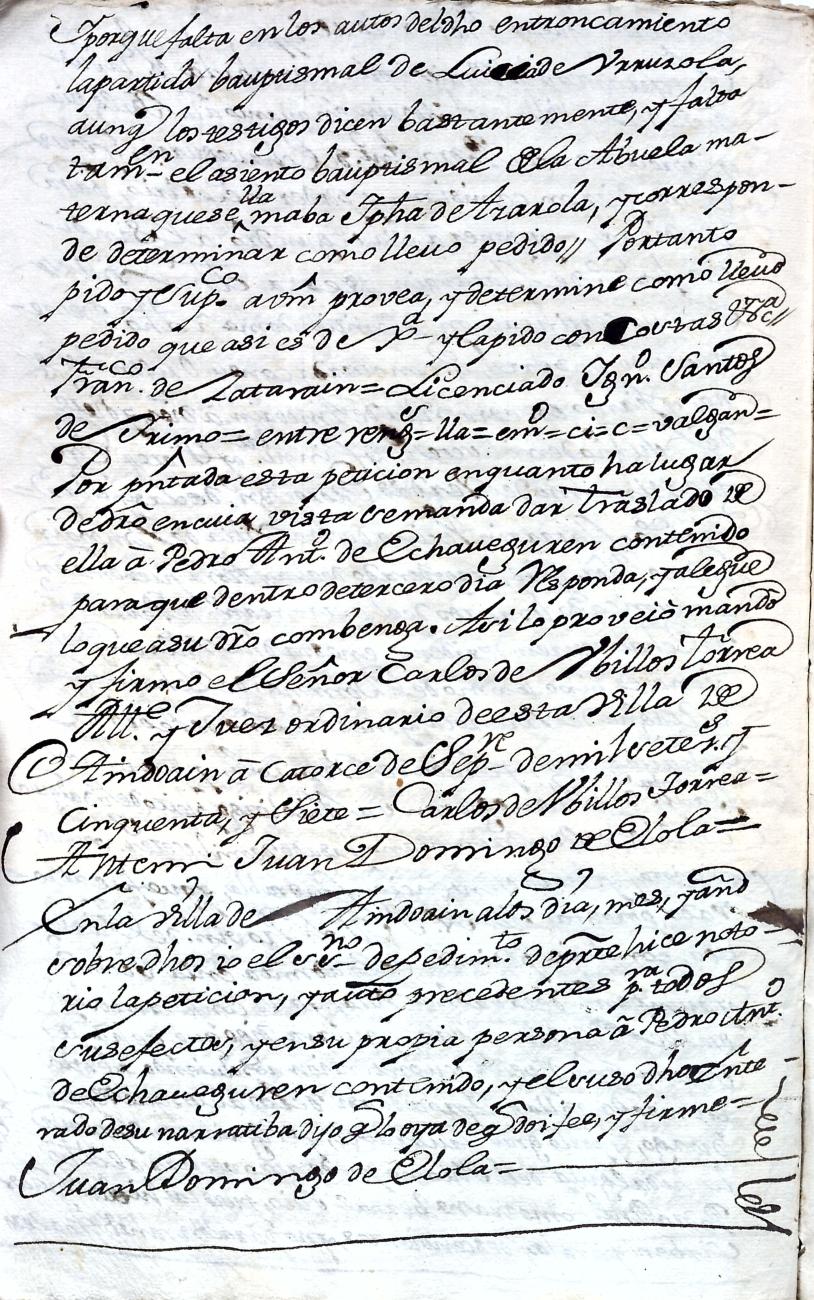 Yporque falta en los autos del dho entroncamiento
la partida bauptismal de Lucia de Vrruzola,
aunq̃ los testigos dicen bastantemente, y falta
tamen el asiento bauptismal de la Abuela ma-
terna que se llamaba Jpha de Azarola, y correspon-
de determinar como llevo pedido// Portanto
pido y Supco. avm̃ provea, y determine como llevo
pedido que asi es de Xª y la pido con Costas &ª//
Franco. de Latarain= Licenciado Igno. Santos
de Frimo= entre rengs= lla= emdo= ci= c= valgan=
Por pñtada esta peticion en quanto ha lugar
de dr̃o en cuia vista se manda dar traslado de
ella â Pedro Anto. de Echaveguren contenido
para que dentro de tercero dia Responda, y alegue
lo que a su dr̃o combenga. Asi lo proveiò mandò
y firmo el Señor Carlos de Vbillos Torrea
Alle. y Juez ordinario de esta Villa de
Amdoain â Catorce de Sepre de mil setes. y
Cinquenta, y Siete= Carlos de Vbillos Torrea=
Antemi Juan Domingo de Elola=
En la Villa de Amdoain a los dia, mes, y año
sobre dhos io el Ssno de pedimto. de pr̃te hice noto-
rio la peticion, y auto precedentes pra todos
sus efectos, y en su propia persona â Pedro Anto.
de Echaveguren contenido, y el suso dho ente-
rado de su narratiba dijo q̃ lo oya de q̃ doi fee, y firme=
Juan Domingo de Elola=